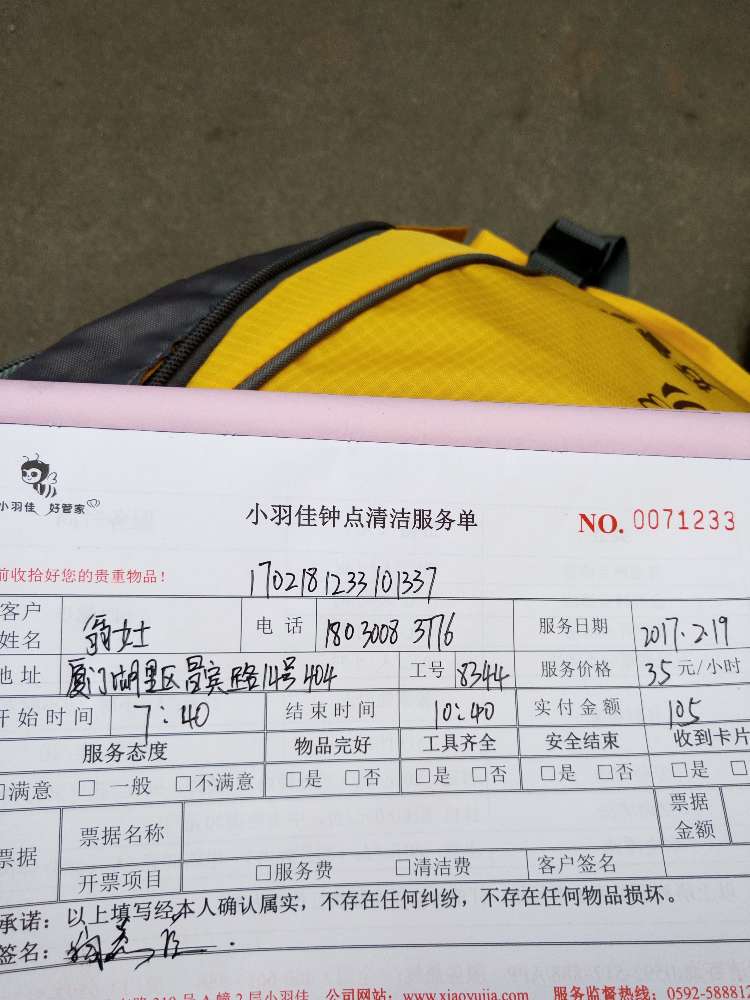 小羽佳 好管家
小羽佳钟点清洁服务单
NO. 0071233
前收拾好您的贵重物品！
1702181233101337
客户姓名 翁女士 电话 18030083776 服务日期 2017.2.19
地址 厦门湖里区昌宾路14号404 工号 8344 服务价格 35元/小时
开始时间 7:40 结束时间 10:40 实付金额 105
服务态度 物品完好 工具齐全 安全结束 收到卡片
□满意 □一般 □不满意 □是 □否 □是 □否 □是 □否 □是
票据 票据名称 票据金额
开票项目 □服务费 □清洁费 客户签名
承诺：以上填写经本人确认属实，不存在任何纠纷，不存在任何物品损坏。
签名：
210号A幢2层小羽佳 公司网站：www.xiaoyujia.com 服务监督热线：0592-58881